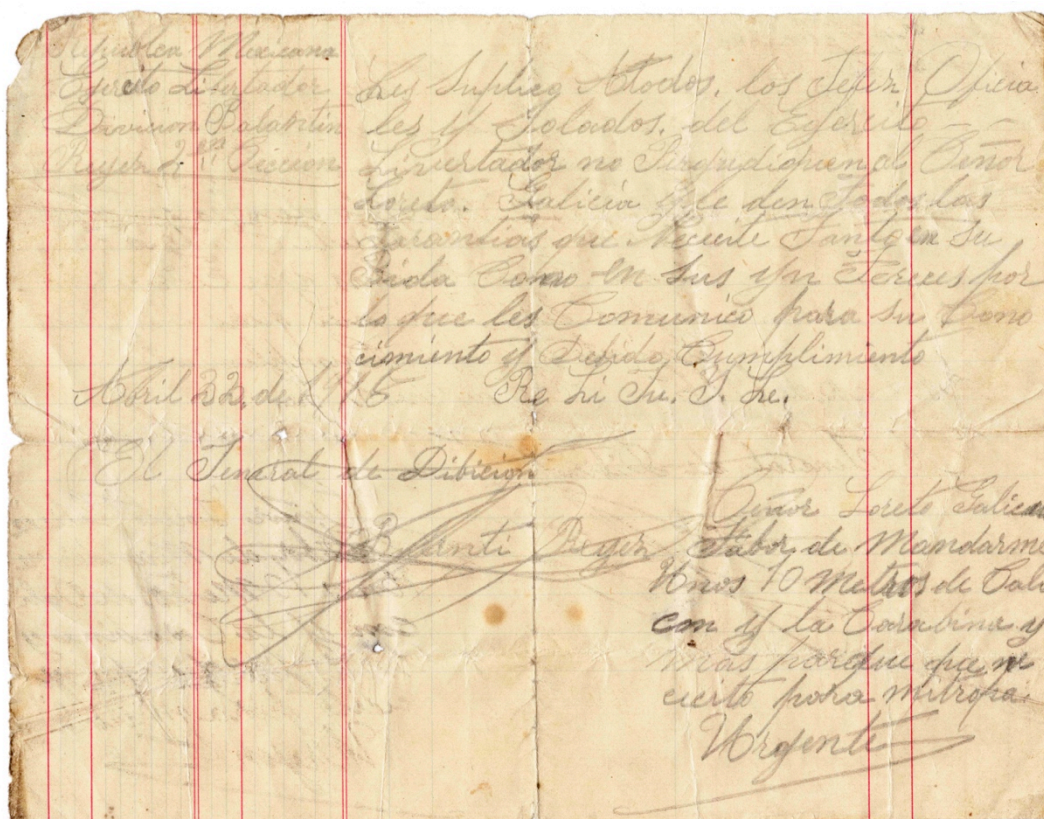 Republica Mexicana
Egercito Libertador
Divicion Balantin
Reyez 2ª Ceccion
Les Suplico Atodos. los Jefez, Oficia
les y Soldados. del Egercito
Livertador no Perjudiquen al Ceñor
Loreto. Galicia y le den Todos las
Garantias que Necicite Tanto en Su
Bida Como en Sus yn Tereces por
lo que les Comunico para Su Cono
cimiento y Devido Cumplimiento
Abril 22, de 1915 Re Li Ju. J. Le.
El Jeneral de Dibicion
Balanti Reyez
Ceñor Loreto Galicia
Fabor, de Mandarme
Unos 10 Metros de
y la Carabina y
Mas parque que ne
cicito para mitropa.
Urgente